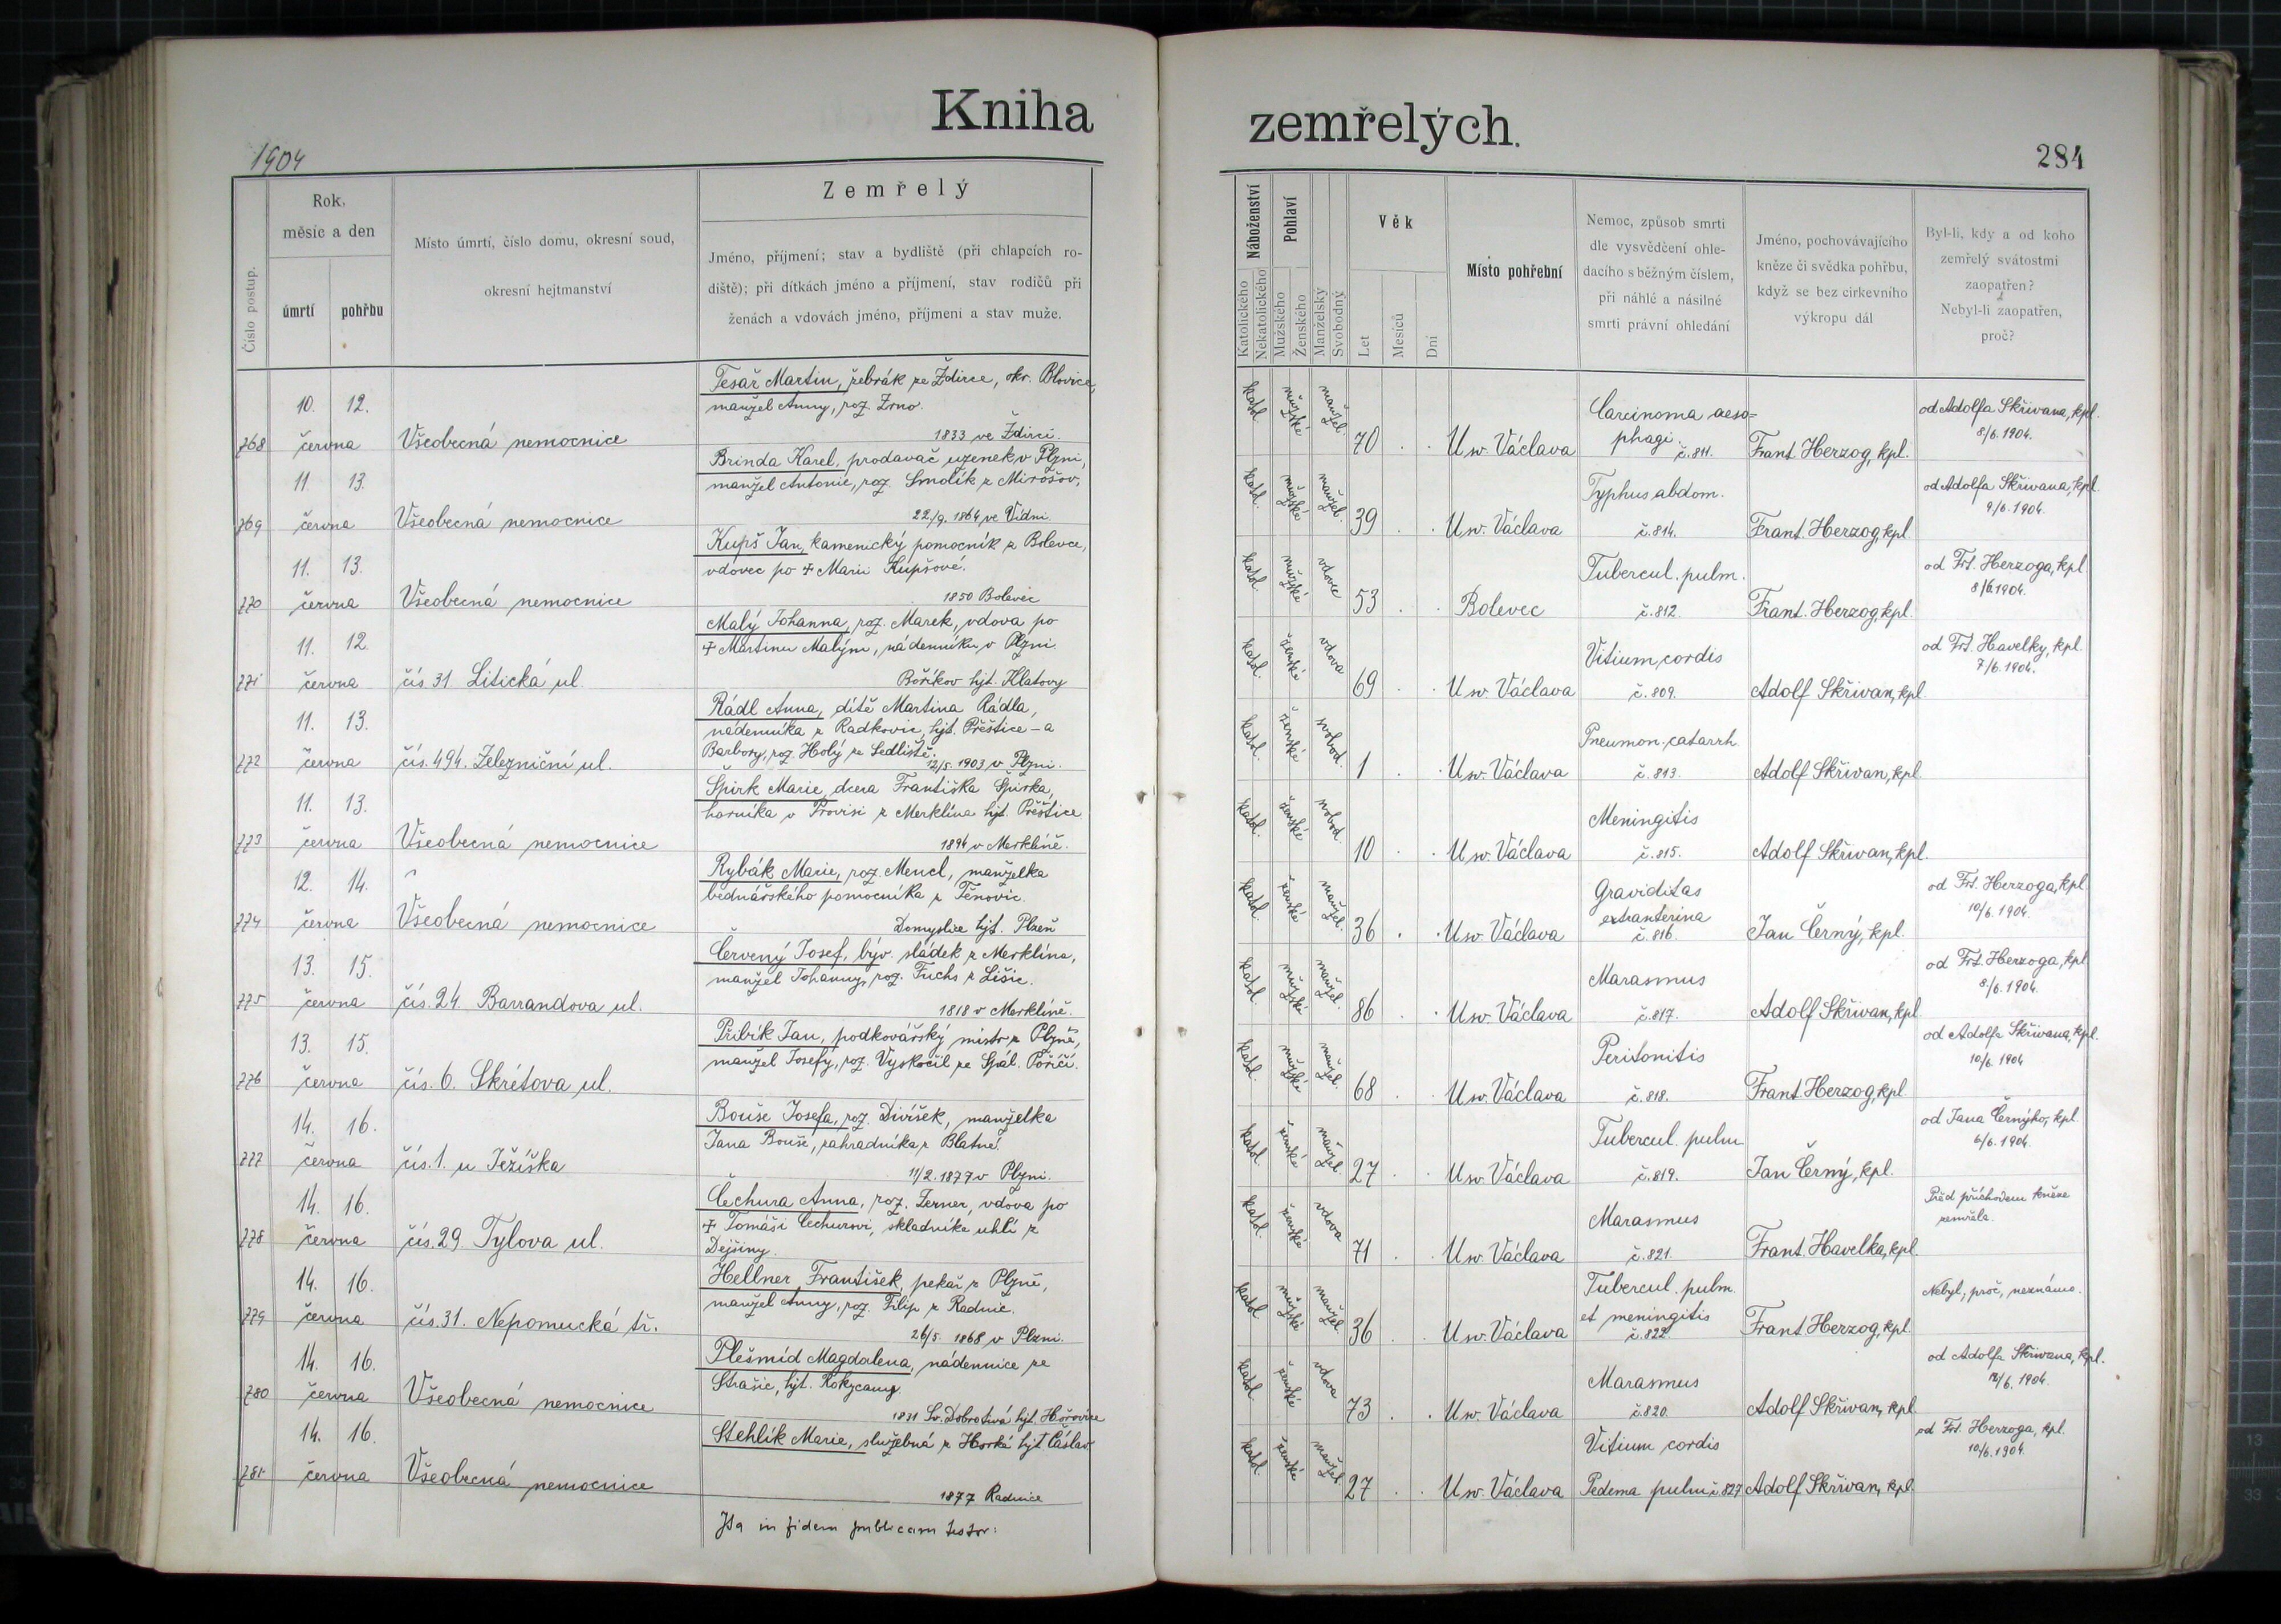 Kniha
zemřelých.
1904
284
Číslo postup.
Rok,
měsíc a den
úmrtí
pohřbu
Místo úmrtí, číslo domu, okresní soud,
okresní hejtmanství
Zemřelý
Jméno, příjmení; stav a bydliště (při chlapcích ro-
diště); při dítkách jméno a příjmení, stav rodičů při
ženách a vdovách jméno, příjmení a stav muže.
Náboženství
Katolického
Nekatolického
Pohlaví
Mužského
Ženského
Manželský
Svobodný
Věk
Let
Měsíců
Dní
Místo pohřební
Nemoc, způsob smrti
dle vysvědčení ohle-
dacího s běžným číslem,
při náhlé a násilné
smrti právní ohledání
Jméno, pochovávajícího
kněze či svědka pohřbu,
když se bez církevního
výkropu dál
Byl-li, kdy a od koho
zemřelý svátostmi
zaopatřen?
Nebyl-li zaopatřen,
proč?
768 10. 12. června Všeobecná nemocnice
Tesař Martin, žebrák ze Ždirce, okr. Blovice,
manžel Anny, roz. Zrno.
1833 ve Ždirci.
katol. mužské manžel. 70 U sv. Václava
Carcinoma aeso=
phagi. č. 811.
Frant Herzog, kpl.
od Adolfa Skřivana, kpl.
8/6. 1904.
769 11 13. června Všeobecná nemocnice
Brinda Karel, prodavač uzenek v Plzni,
manžel Antonie, roz. Smolík z Mirošov,
22/9. 1864 ve Vídni
katol. mužské manžel. 39 U sv. Václava
Typhus abdom.
č. 814.
Frant. Herzog, kpl
od Adolfa Skřivana, kpl.
9/6. 1904.
770 11. 13. června Všeobecná nemocnice
Kupš Jan, kamenický pomocník z Bolevce,
vdovec po ✝ Marii Kupšové.
1850 Bolevec
katol. mužské vdovec 53 Bolevec
Tubercul. pulm.
č. 812.
Frant. Herzog, kpl.
od Frt. Herzoga, kpl.
8/6 1904.
771 11. 12. června čís 31 Litická ul.
Malý Johanna, roz. Marek, vdova po
✝ Martinu Malým, nádenníku, v Plzni.
Boříkov hjt. Klatovy
katol. ženské vdova 69 U sv. Václava
Vitium cordis
č. 809.
Adolf Skřivan, kpl
od Frt. Havelky, kpl.
7/6. 1904.
772 11. 13. června čís. 494. Železniční ul.
Rádl Anna, dítě Martina Rádla,
nádenníka z Radkovic, hjt. Přeštice – a
Barbory, roz. Holý ze Sedliště.
12/5. 1903 v Plzni.
katol. ženské svobod. 1 U sv. Václava
Pneumon. catarrh
č. 813.
Adolf Skřivan, kpl.
773 11. 13. června Všeobecná nemocnice
Špirk Marie, dcera Františka Špirka,
horníka v Provisi z Merklína hjt. Přeštice
1894 v Merklíně.
katol. ženské svobod. 10 U sv. Václava
Meningitis
č. 815.
Adolf Skřivan, kpl.
774 12. 14. června Všeobecná nemocnice
Rybák Marie, roz. Mencl, manželka
bednářského pomocníka z Těnovic.
Domyslice hjt. Plzeň
katol. ženské manžel. 36 U sv. Václava
Graviditas
extranterina
č. 816.
Jan Černý, kpl.
od Frt. Herzoga, kpl.
10/6. 1904.
775 13. 15. června čís. 24. Barrandova ul.
Červený Josef, býv. sládek z Merklína,
manžel Johanny, roz. Fuchs z Lišic.
1818 v Merklíně.
katol. mužské manžel. 86 U sv. Václava
Marasmus
č. 817.
Adolf Skřivan, kpl.
od Frt. Herzoga, kpl
8/6. 1904.
776 13. 15. června čís. 6. Skrétova ul.
Přibík Jan, podkovářský mistr z Plzně,
manžel Josefy, roz. Vyskočil ze Spál. Poříčí.
katol. mužské manžel. 68 U sv. Václava
Peritonitis
č. 818.
Frant Herzog, kpl
od Adolfa Skřivana, kpl.
10/6. 1904
777 14. 16. června čís. 1. u Ježíška
Bouše Josefa, roz. Divíšek, manželka
Jana Bouše, zahradníka z Blatné.
11/2. 1877 v Plzni.
katol. ženské manžel. 27 U sv. Václava
Tubercul. pulm
č. 819.
Jan Černý, kpl.
od Jana Černýho, kpl.
6/6. 1904.
778 14. 16. června čís. 29. Tylova ul.
Čechura Anna, roz. Terner, vdova po
✝ Tomáši Čechurovi, skladníka uhlí z
Dejšiny.
katol. ženské vdova 71 U sv. Václava
Marasmus
č. 821.
Frant. Havelka, kpl.
Před příchodem kněze
zemřela.
779 14. 16. června čís. 31. Nepomucká tř.
Hellner František, pekař z Plzně,
manžel Anny, roz. Filip z Radnic.
26/5. 1868 v Plzni.
katol. mužské manžel. 36 U sv. Václava
Tubercul. pulm.
et meningitis
č. 822.
Frant Herzog, kpl.
Nebyl, proč, neznámo.
780 14. 16. června Všeobecná nemocnice
Plešmíd Magdalena, nádennice ze
Strašic, hjt. Rokycany.
1831 Sv. Dobrotivá hjt. Hořovice
katol. ženské vdova 73 U sv. Václava
Marasmus
č. 820.
Adolf Skřivan, kpl.
od Adolfa Skřivana, kpl.
12/6. 1904.
781 14. 16. června Všeobecná nemocnice
Stehlík Marie, služebná z Horka hjt Čáslav
1877 Radnice
katol. ženské manžel 27 U sv. Václava
Vitium cordis
Pedema pulm č 827
Adolf Skřivan, kpl.
od Frt. Herzoga, kpl.
10/6. 1904.
Ita in fidem publicam testor: